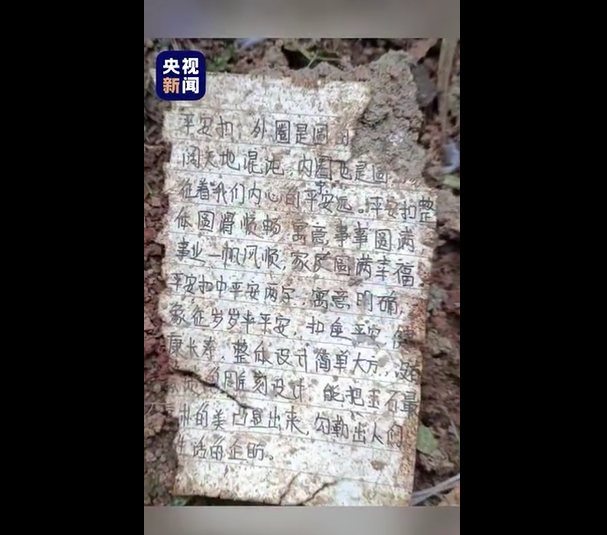 央视
新闻
平安扣：外圈是圆
阔天地混沌，内圈也是圆
在着我们内心的平安远。平安扣整
体圆滑顺畅，寓意事事圆满
事业一帆风顺，家庭圆满幸福。
平安扣中平安两字，寓意明确，
象征岁岁平平安，扣色平安，健
康长寿，整体设计简单大方，
的雕刻设计，能把玉石最
的美凸显出来，勾勒出人们
生活的